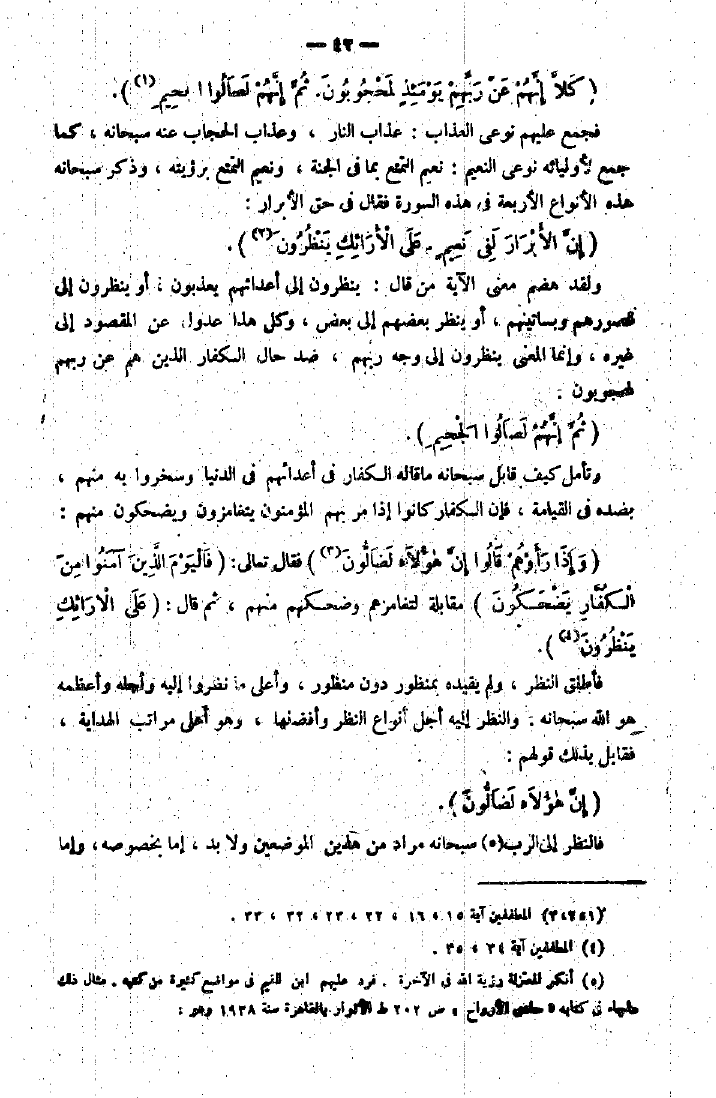 — ٤٣ —
( كَلاَّ إِنَّهُمْ عَنْ رَبِّهِمْ يَوْمَئِذٍ لَمَحْجُوبُونَ. ثُمَّ إِنَّهُمْ لَصَالُوا الجَحِيمِ (١) ).
فجمع عليهم نوعى العذاب : عذاب النار ، وعذاب الحجاب عنه سبحانه ، كما
جمع لأوليائه نوعى النعيم : نعيم التمتع بما فى الجنة ، ونعيم التمتع برؤيته ، وذكر سبحانه
هذه الأنواع الأربعة فى هذه السورة فقال فى حق الأبرار :
( إِنَّ الْأَبْرَارَ لَفِى نَعِيمٍ . عَلَى الْأَرَائِكِ يَنْظُرُونَ (٢) ) .
ولقد هضم معنى الآية من قال : ينظرون إلى أعدائهم يعذبون ، أو ينظرون إلى
قصورهم وبساتينهم ، أو ينظر بعضهم إلى بعض ، وكل هذا عدول عن المقصود إلى
غيره ، وإنما المعنى ينظرون إلى وجه ربهم ، ضد حال الكفار الذين هم عن ربهم
لمحجوبون .
( ثُمَّ إِنَّهُمْ لَصَالُوا الْجَحِيمِ ) .
وتأمل كيف قابل سبحانه ماقاله الكفار فى أعدائهم فى الدنيا وسخروا به منهم ،
بضده فى القيامة ، فإن الكفار كانوا إذا مر بهم المؤمنون يتغامزون ويضحكون منهم :
( وَإِذَا رَأَوْهُمْ قَالُوا إِنَّ هَؤُلاَءِ لَضَالُّونَ (٣) ) فقال تعالى : ( فَالْيَوْمَ الَّذِينَ آمَنُوا مِنَ
الْكُفَّارِ يَضْحَكُونَ ) مقابلة لتغامزهم وضحكهم منهم ، ثم قال : ( عَلَى الْأَرَائِكِ
يَنْظُرُونَ (٤) ) .
فأطلق النظر ، ولم يقيده بمنظور دون منظور ، وأعلى ما نظروا إليه وأجله وأعظمه
هو الله سبحانه . والنظر إليه أجل أنواع النظر وأفضلها ، وهو أعلى مراتب الهداية ،
فقابل بذلك قولهم :
( إِنَّ هَؤُلاَءِ لَضَالُّونَ ) .
فالنظر إلى الرب(٥) سبحانه مراد من هذين الموضعين ولا بد ، إما بخصوصه ، وإما
(٣،٢،١) المطففين آية ١٥ ، ١٦ ، ٢٢ ، ٢٣ ، ٣٢ ، ٣٣ .
(٤) المطففين آية ٣٤ ، ٣٥ .
(٥) أنكر المعتزلة رؤية الله فى الآخرة . فرد عليهم ابن القيم فى مواضع كثيرة من كتبه . مثال ذلك
فى كتابه « حادى الأرواح » ص ٢٠٢ ط الأنوار بالقاهرة سنة ١٩٣٨ وهو :